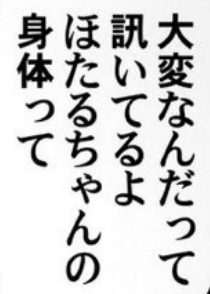 大変なんだって
訊いてるよ
ほたるちゃんの
身体って